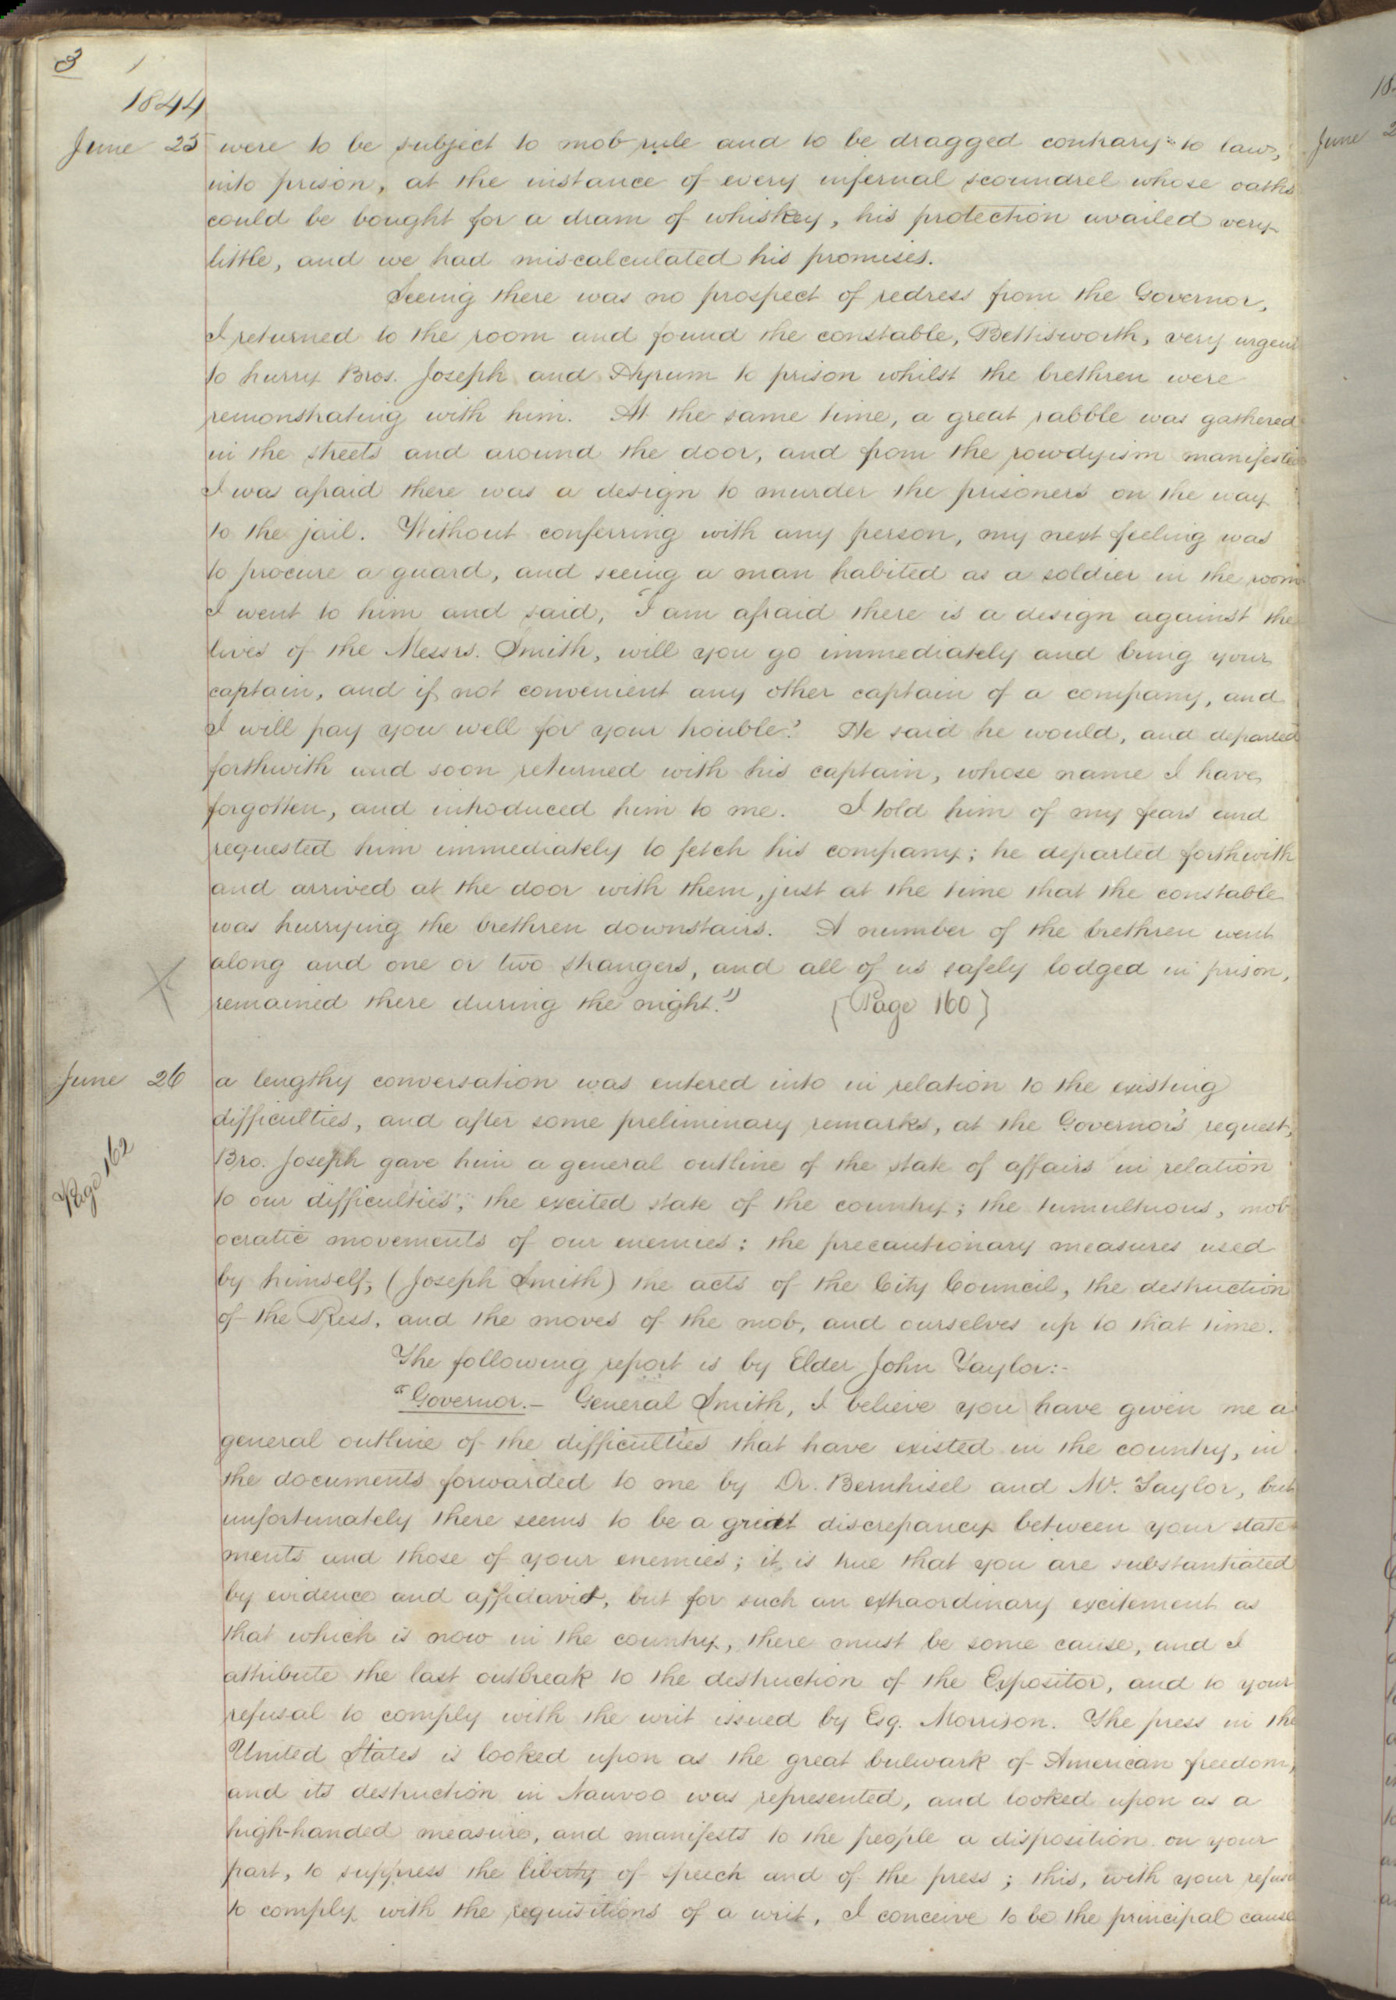 3
1844
June 25 were to be subject to mob rule and to be dragged contrary to law,
into prison, at the instance of every infernal scoundrel whose oaths
could be bought for a dram of whiskey, his protection availed very
little, and we had miscalculated his promises.
Seeing there was no prospect of redress from the Governor,
I returned to the room and found the constable, Bettisworth, very urgent
to hurry Bros. Joseph and Hyrum to prison whilst the brethren were
remonstrating with him. At the same time, a great rabble was gathered
in the streets and around the door, and from the rowdyism manifested
I was afraid there was a design to murder the prisoners on the way
to the jail. Without conferring with any person, my next feeling was
to procure a guard, and seeing a man habited as a soldier in the room
I went to him and said, "I am afraid there is a design against the
lives of the Messrs. Smith, will you go immediately and bring your
captain, and if not convenient any other captain of a company, and
I will pay you well for your trouble? He said he would, and departed
forthwith and soon returned with his captain, whose name I have
forgotten, and introduced him to me. I told him of my fears and
requested him immediately to fetch his company; he departed forthwith
and arrived at the door with them, just at the time that the constable
was hurrying the brethren downstairs. A number of the brethren went
along and one or two strangers, and all of us safely lodged in prison,
remained there during the night." {Page 160}
June 26 a lengthy conversation was entered into in relation to the existing
difficulties, and after some preliminary remarks, at the Governor's request,
Page 162
Bro. Joseph gave him a general outline of the state of affairs in relation
to our difficulties; the excited state of the country; the tumultuous, mob
ocratic movements of our enemies; the precautionary measures used
by himself, (Joseph Smith) the acts of the City Council, the destruction
of the Press, and the moves of the mob, and ourselves up to that time.
The following report is by Elder John Taylor:-
"Governor.- General Smith, I believe you have given me a
general outline of the difficulties that have existed in the country, in
the documents forwarded to me by Dr. Bernhisel and Mr. Taylor, but
unfortunately there seems to be a great discrepancy between your state
ments and those of your enemies; it is true that you are substantiated
by evidence and affidavit, but for such an extraordinary excitement as
that which is now in the country, there must be some cause, and I
attribute the last outbreak to the destruction of the Expositor, and to your
refusal to comply with the writ issued by Esq. Morrison. The press in the
United States is looked upon as the great bulwark of American freedom,
and its destruction in Nauvoo was represented, and looked upon as a
high-handed measure, and manifests to the people a disposition on your
part, to suppress the liberty of speech and of the press; this, with your refusal
to comply with the requisitions of a writ, I conceive to be the principal cause
June